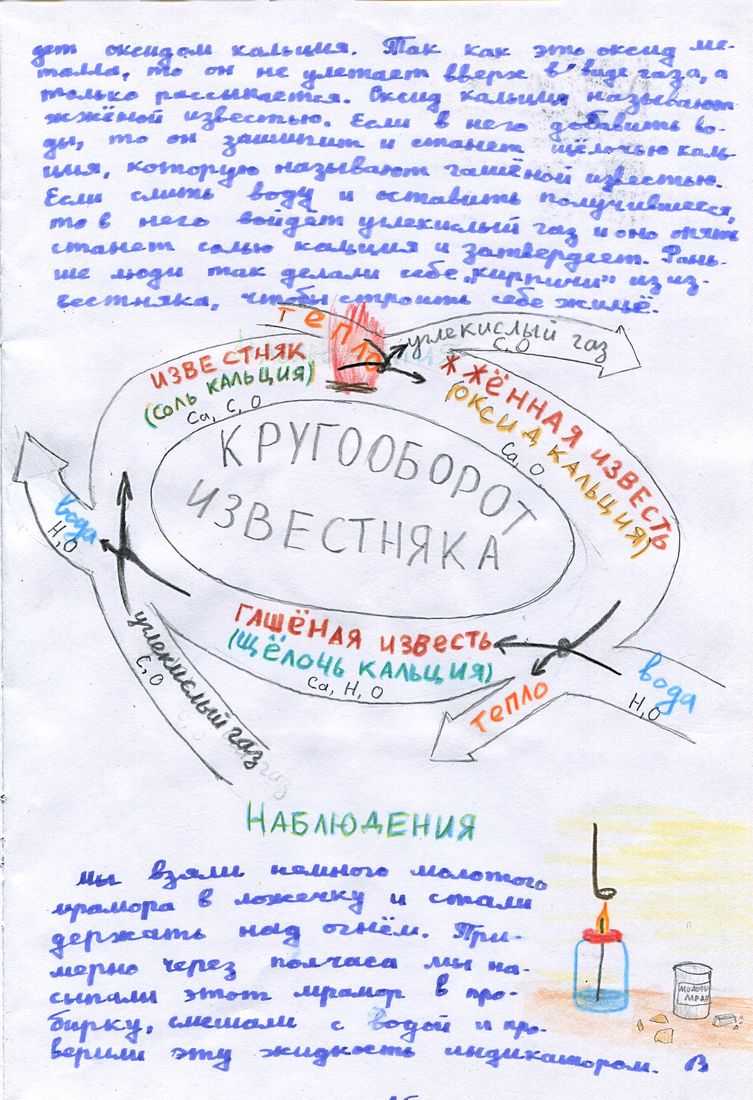 дет оксидом кальция. Так как это оксид ме-
талла, то он не улетает вверх в виде газа, а
только рассыпается. Оксид кальция называют
жжёной известью. Если в него добавить во-
ды, то он зашипит и станет щёлочью каль-
ция, которую называют гашёной известью.
Если слить воду и оставить получившееся,
то в него войдёт углекислый газ и оно опять
станет солью кальция и затвердеет. Рань-
ше люди так делали себе „кирпичи" из из-
вестняка, чтобы строить себе жильё.
тепло
углекислый газ
C, O
ИЗВЕСТНЯК
(СОЛЬ КАЛЬЦИЯ)
Ca, C, O
ЖЖЁННАЯ ИЗВЕСТЬ
(ОКСИД КАЛЬЦИЯ)
Ca, O
КРУГООБОРОТ
ИЗВЕСТНЯКА
вода
H, O
ГАШЁНАЯ ИЗВЕСТЬ
(ЩЁЛОЧЬ КАЛЬЦИЯ)
Ca, H, O
углекислый газ
C, O
тепло
вода
H, O
НАБЛЮДЕНИЯ
Мы взяли немного молотого
мрамора в ложечку и стали
держать над огнём. При-
мерно через полчаса мы на-
сыпали этот мрамор в про-
бирку, смешали с водой и про-
верили эту жидкость индикатором. В